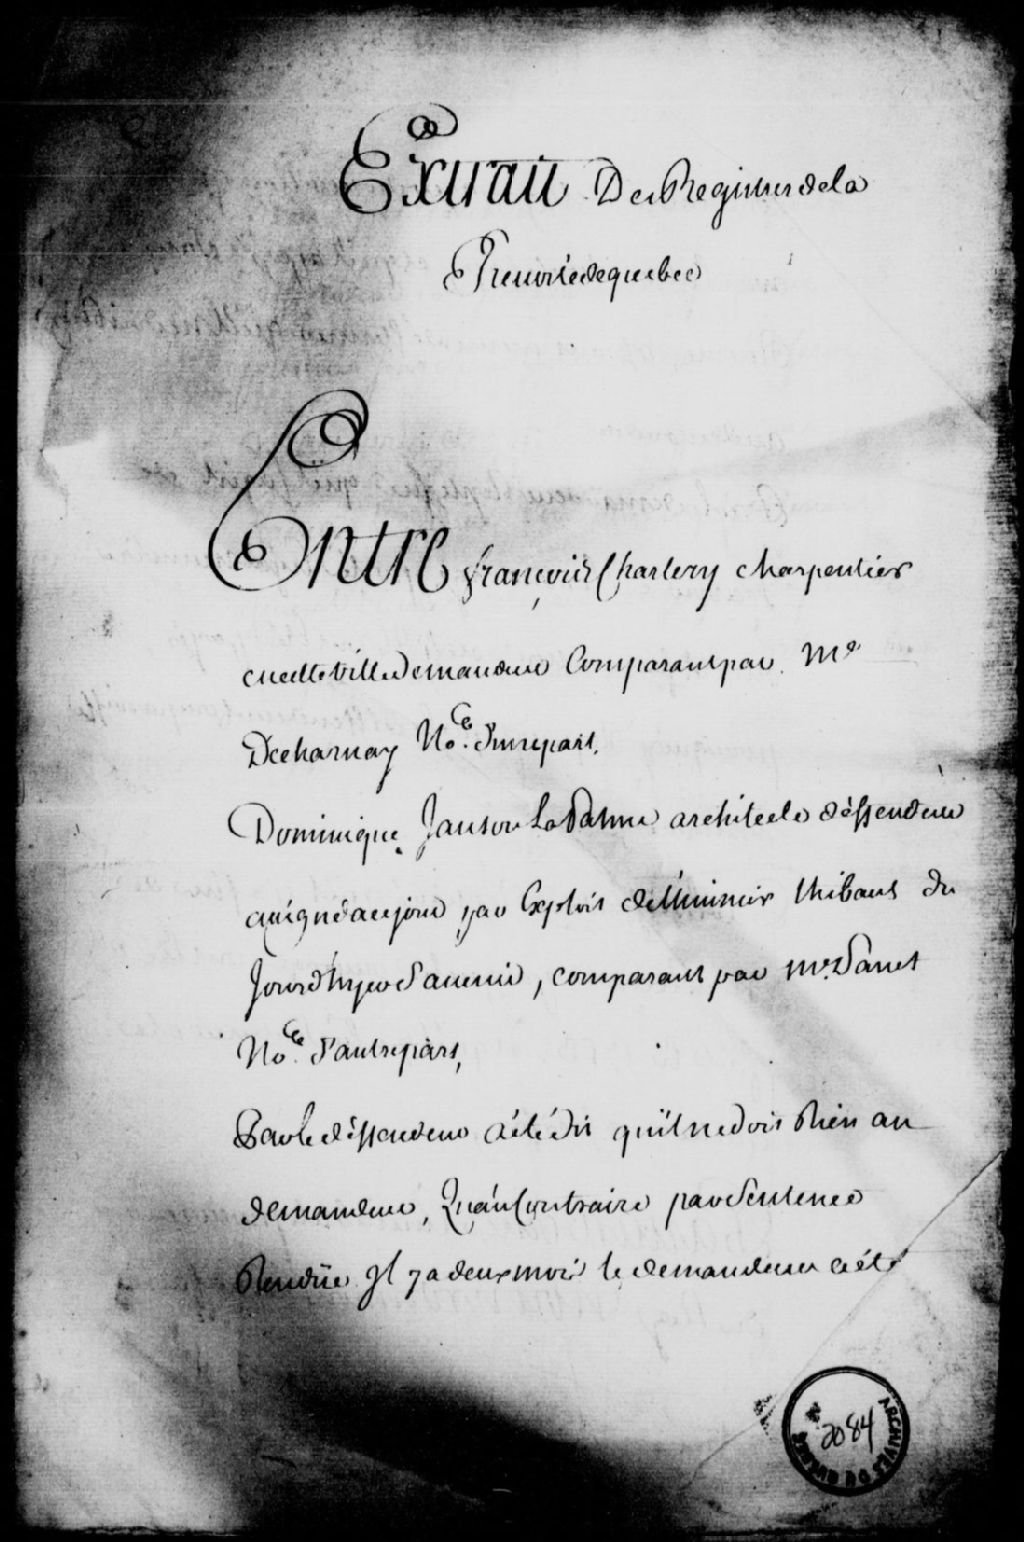 Extrait Des Registres de la
Prevosté de quebec
Entre françois Charlery charpentier
en cette ville demandeur Comparant par Me
Decharnay No.re d'une part,
Dominique Janson La Palme architecte déffendeur
assigné a ce jour par Exploit de l'huissier thibault du
Jour d'hyer d'avenir, comparant par Me. Panet
No.re d'autre part,
Par le déffendeur a été dit qu'il ne doit Rien au
demandeur, Qu'au Contraire par Sentence
Rendüe Il y a deux mois le demandeur a été
ARCHIVES DE QUEBEC
No 2084